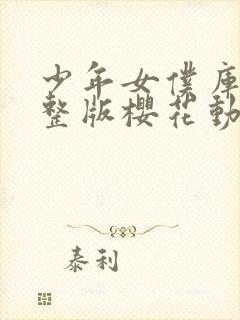 少年女僕庫
整版櫻花動
泰利